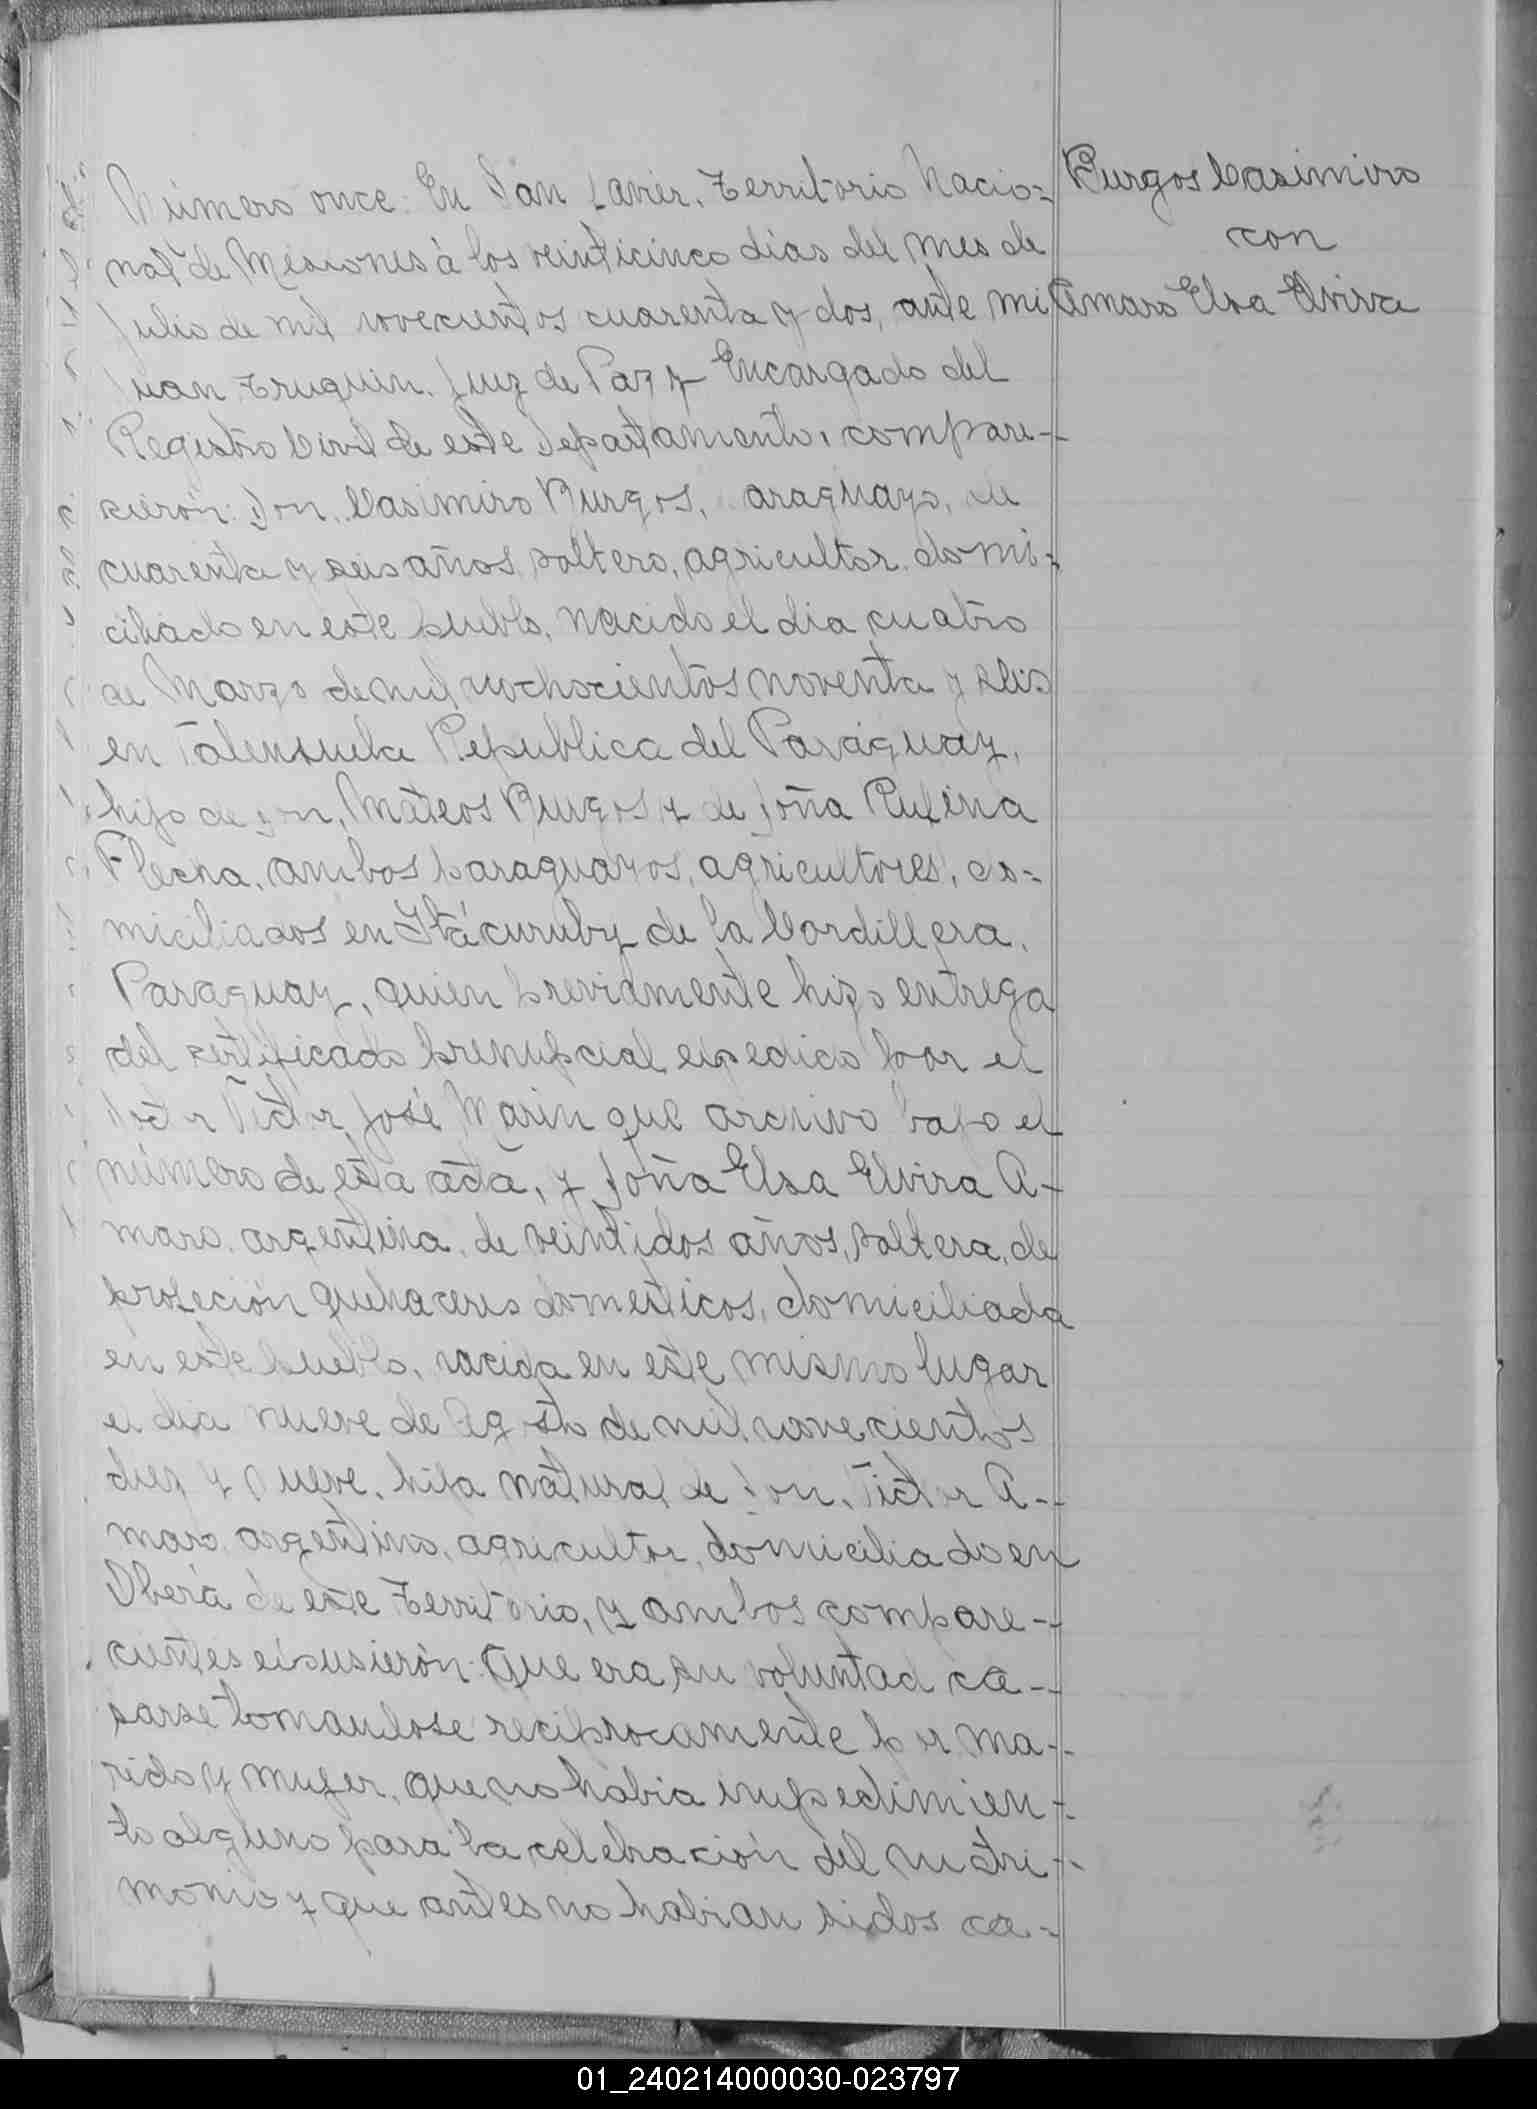 Número once: En San Javier, Territorio Nacio=
nal de Misiones à los veinticinco dias del mes de
Julio de mil novecientos cuarenta y dos, ante mi
Juan Truquin, Juez de Paz y Encargado del
Registro Civil de este Departamento, compare-
cierón: Don, Casimiro Burgos, araguayo, de
cuarenta y seis años, soltero, agricultor, domi=
ciliado en este pueblo, nacido el dia cuatro
de Marzo de mil ochocientos noventa y seis
en Valensuela Republica del Paraguay,
hijo de Don, Mateos Burgos, y de Doña Rufina
Flecha, ambos paraguayos, agricultores, do=
miciliados en Itácuruby de la Cordillera,
Paraguay, quien previamente hizo entrega
del certificado prenupcial, expedido por el
Doctor Victor José Marin que archivo bajo el
número de esta acta, y Doña Elsa Elvira A-
maro, argentina, de veintidos años, soltera, de
profeción quehaceres domesticos, domiciliada
en este pueblo, nacida en este mismo lugar
el dia nueve de Agosto de mil novecientos
diez y nueve, hija natural de Don, Victor A--
maro, argentino, agricultor, domiciliado en
Oberá de este Territorio, y ambos compare--
cientes expusierón: Que era su voluntad ca--
sarse tomandose reciprocamente por ma--
rido y mujer, que no habia impedimien-
to alguno para la celebración del matri-
monio y que antes no habian sidos ca-
Burgos Casimiro
con
Amaro Elsa Elvira
01_240214000030-023797